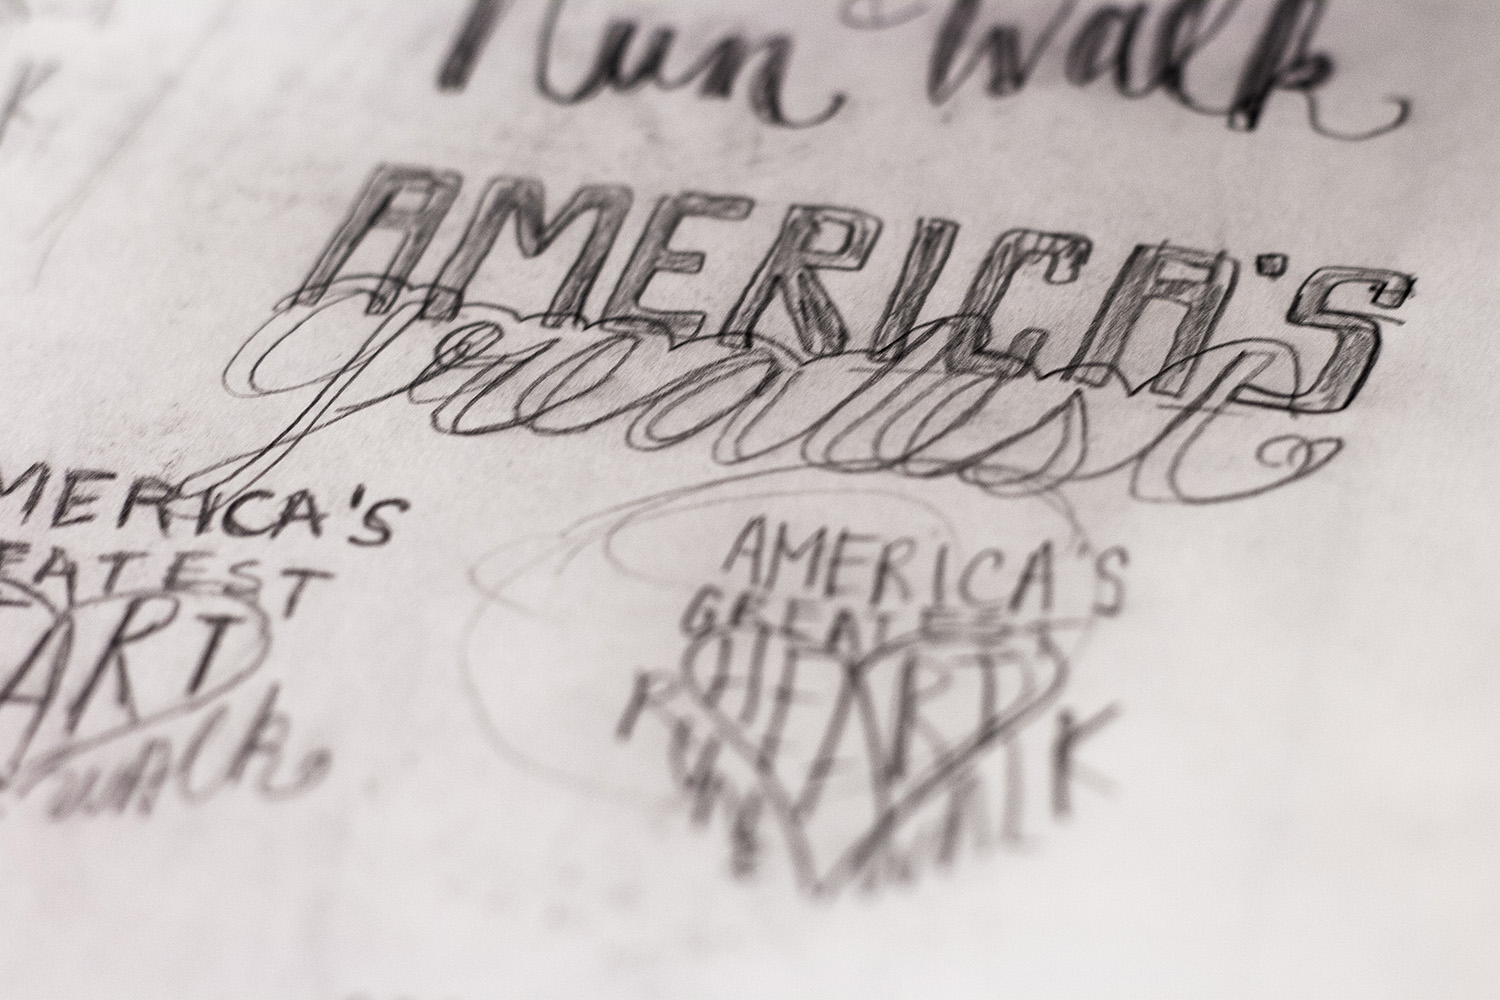 Run Walk
K
AMERICA'S
greatest
MERICA'S
EATEST
ART
AMERICA'S
GREATEST
HEART
RUN & WALK